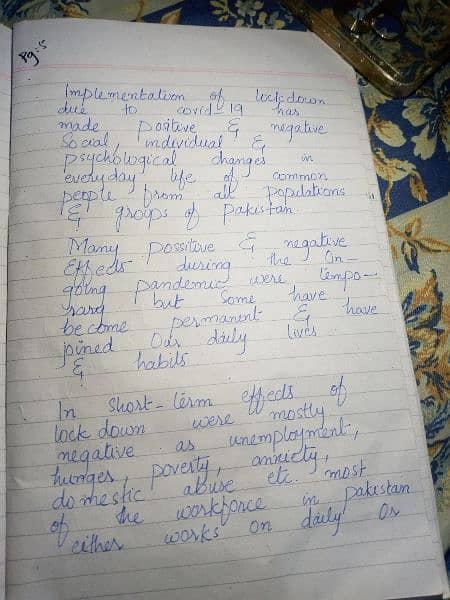 Pg:5
Implementation of lockdown
due to covid-19 has
made positive & negative
Social, individual &
psychological changes in
everyday life of common
people from all populations
& groups of Pakistan.
Many possitive & negative
Effects during the on-
going pandemic were tempo-
rary but some have
become permanent & have
joined our daily lives
& habits
In short-term effects of
lock down were mostly
negative as unemployment,
hunger, poverty, anxiety,
domestic abuse etc. most
of the workforce in pakistan
either works on daily or